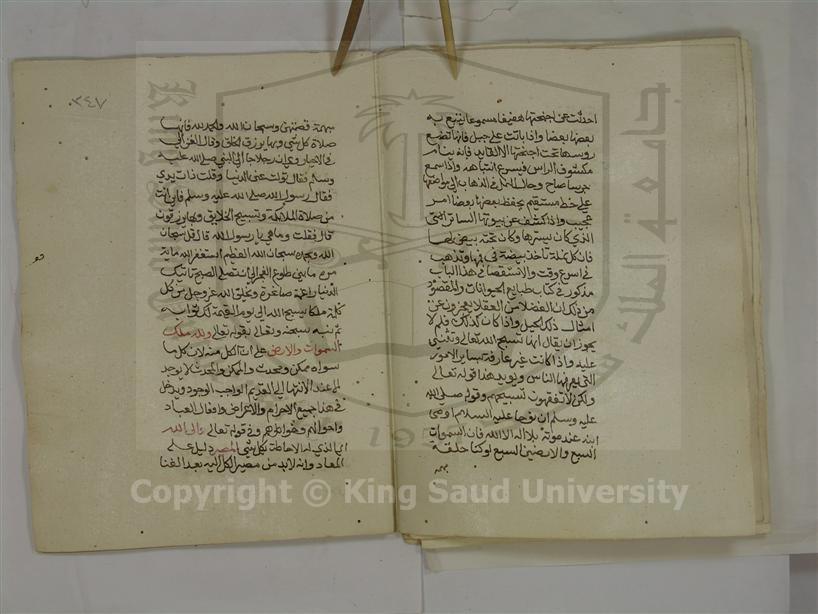 احدثت من اجنحتها حفيفا مسموعا يتبع به
بعضها بعضا واذا باتت على جبل فانها تضع
روسها تحت اجنحتها الا القايد فانه ينام
مكشوف الراس فيسرع انتباهه واذا سمع
جرسا صاح وحال النمل في الذهاب الى مواضعها
على خط مستقيم يحفظ بعضها بعضا امر
عجيب واذا كشف عن بيوتها الساتر
الذي كان يسترها وكان تحته بيض لها
فان كل نملة تاخذ بيضة في فمها وتذهب
في اسرع وقت والاستقصا في هذا الباب
مذكور في كتاب طبايع الحيوانات والمقصود
من ذلك ان الفضلا من العقلا يعجزون عن
امثال ذلك الحيل واذا كان كذلك فلم لا
يجوز ان يقال انها تسبح الله تعالى وتثني
عليه واذا كانت غير عارفة بساير الامور
التي يعرفها الناس ويويد هذا قوله تعالى
ولكن لا تفقهون تسبيحهم وقوله صلى الله
عليه وسلم ان نوحا عليه السلام اوصى
ابنه عند موته بلا اله الا الله فان السموات
السبع والارضين السبع لو كنا حلقة
مبهمة
٣٤٧
مبهمة قصمتهن وسبحان الله والحمد لله فانها
صلاة كل شي وبها يرزق الخلق وقال الغزالي
في الاحيا روي ان رجلا جا الى النبي صلى الله عليه
وسلم فقال تولت عني الدنيا وقلت ذات يدي
فقال رسول الله صلى الله عليه وسلم فاين انت
من صلاة الملائكة وتسبيح الخلايق وبها يرزقون
قال فقلت وما هي يا رسول الله قال قل سبحان
الله وبحمده سبحان الله العظيم استغفر الله ماية
مرة ما بين طلوع الفجر الى ان تصلي الصبح تاتيك
الدنيا راغمة صاغرة ويخلق الله عز وجل من كل
كلمة ملكا يسبح الله الى يوم القيمة لك ثوابه
ثم نبه سبحانه وتعالى بقوله تعالى ولله ملك
السموات والارض على ان الكل منه لان كل ما
سواه ممكن ومحدث والممكن والمحدث لا يوجد
الا عند الانتها الى القديم الواجب الوجود ويدخل
في هذا جميع الاجرام والاعراض وافعال العباد
واحوالهم وخواطرهم وفي قوله تعالى والى الله
اي الذي له الاحاطة بكل شي المصير دليل على
المعاد وانه لا بد من مصير الكل اليه بعد الفنا
جامعة الملك سعود
King Saud University
Copyright © King Saud University